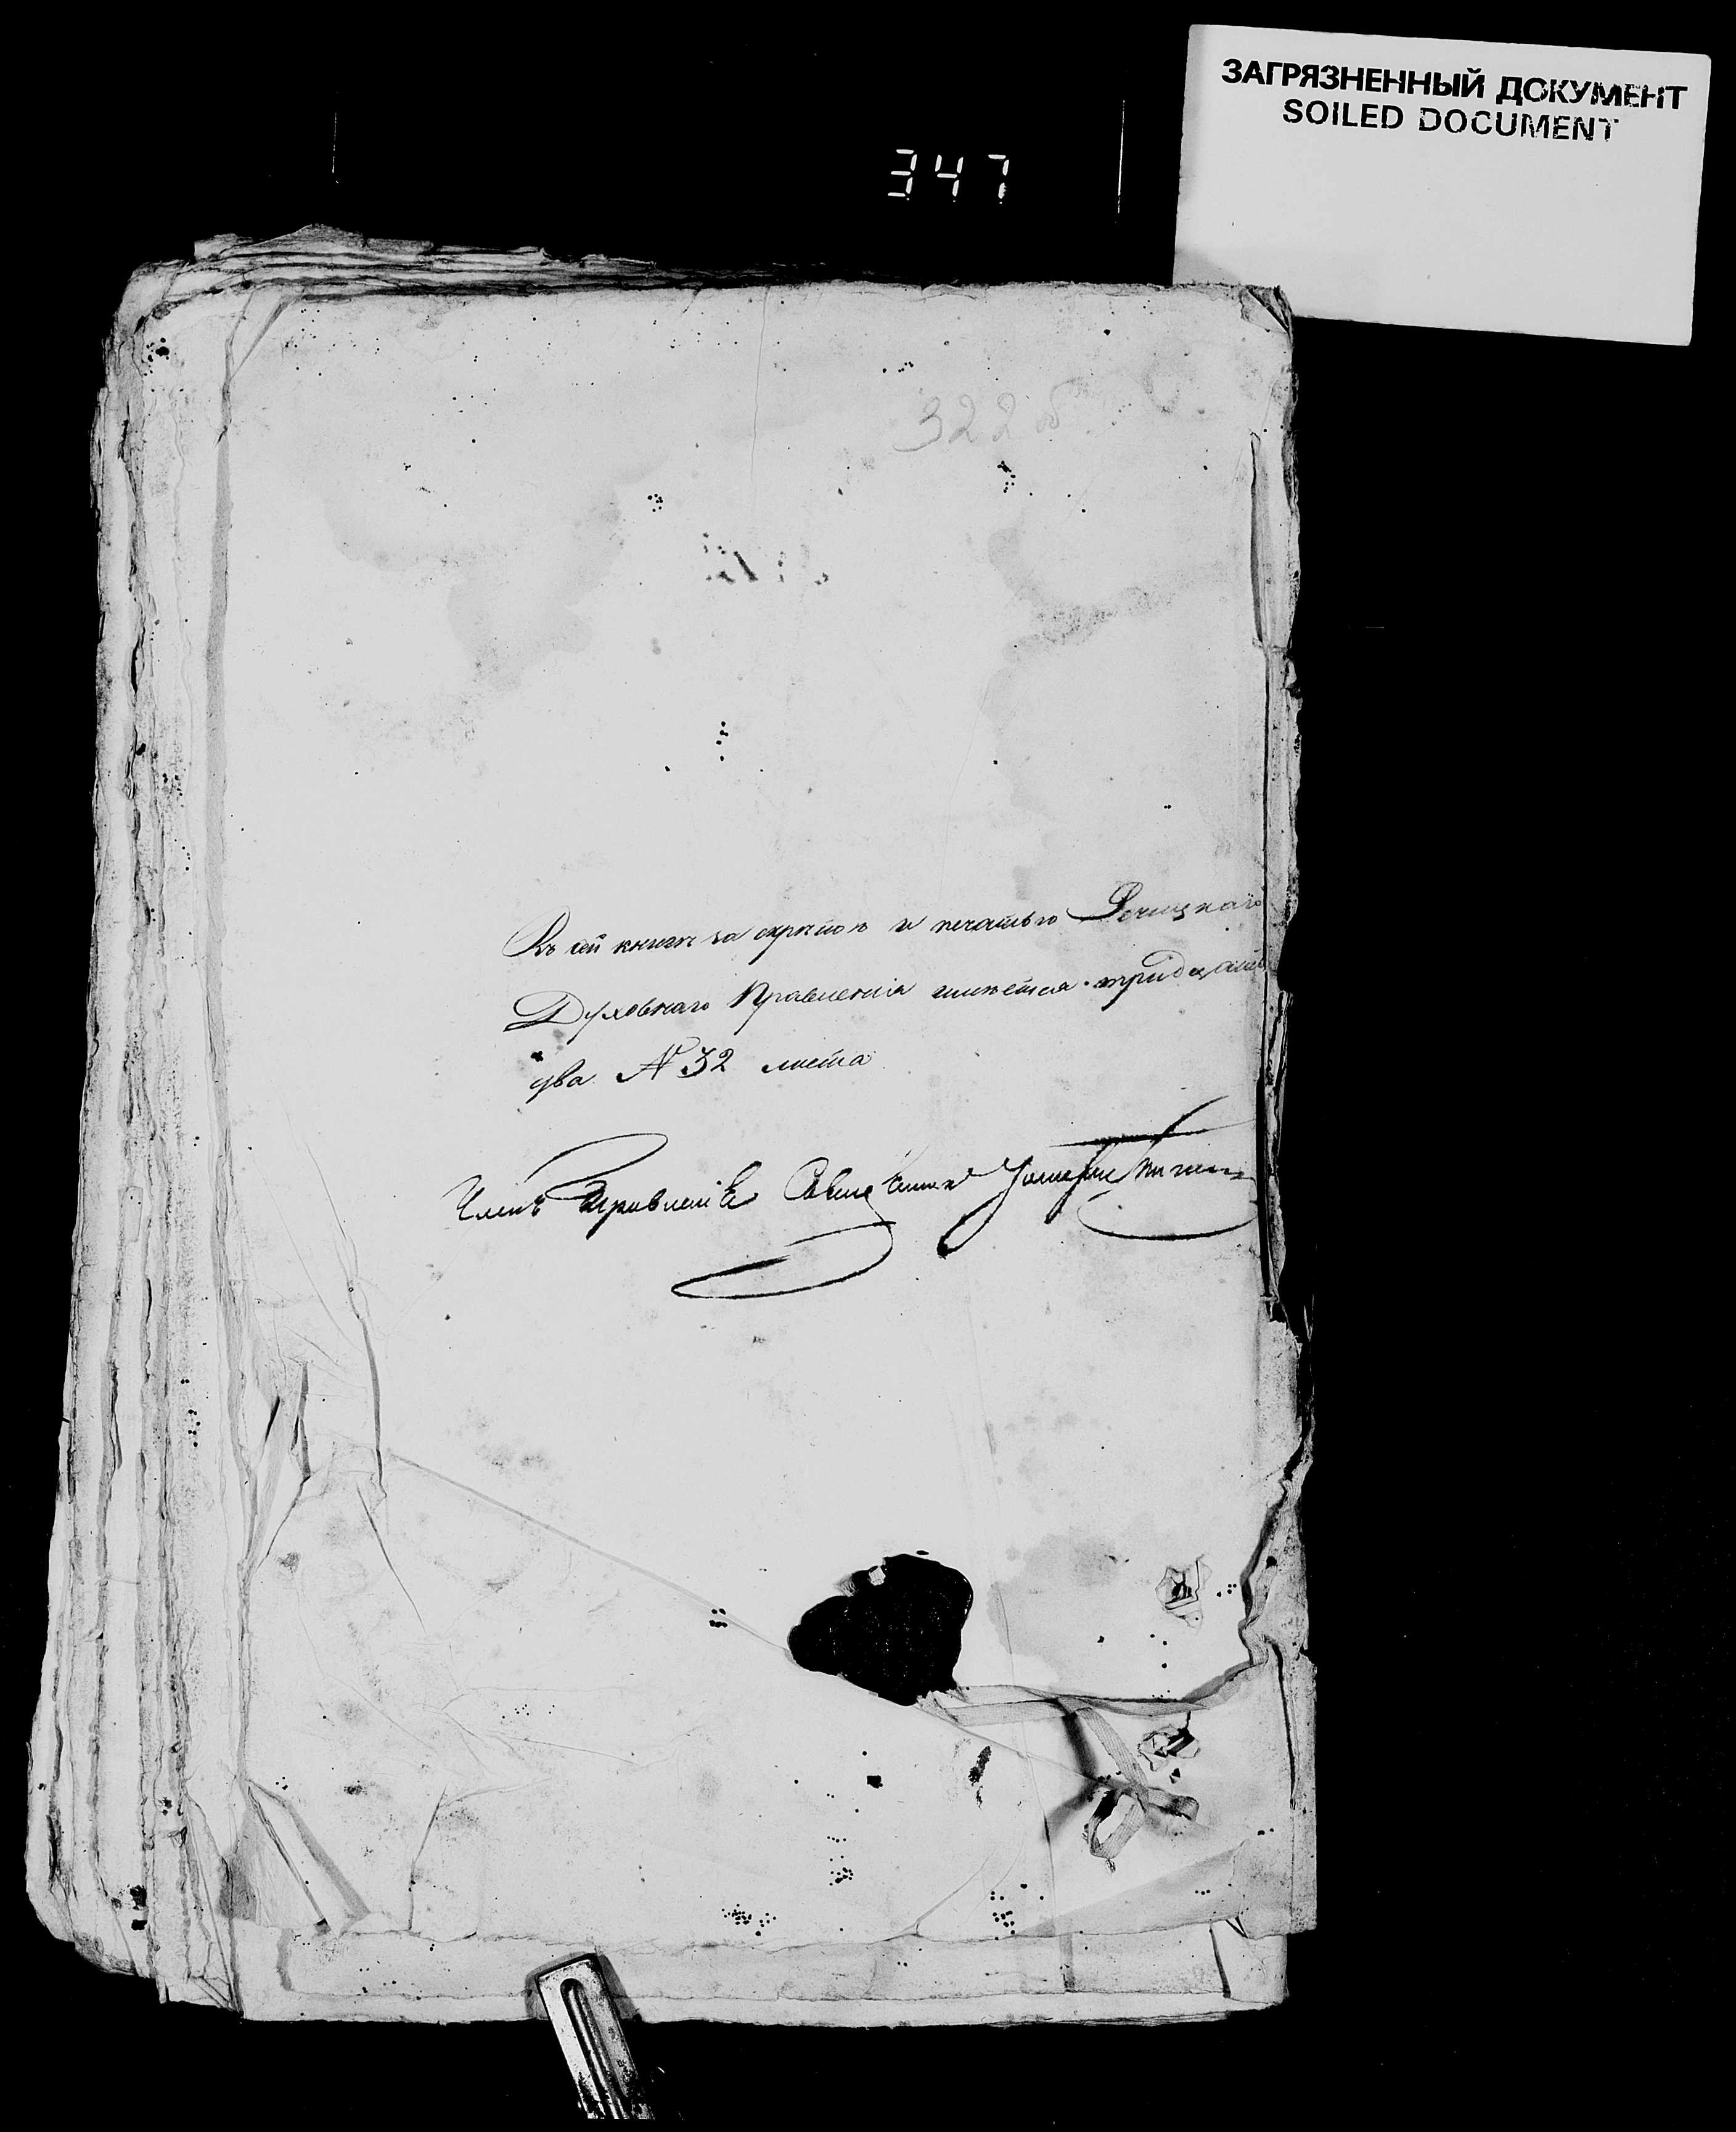 ЗАГРЯЗНЕННЫЙ ДОКУМЕНТ
SOILED DOCUMENT
347
322 об
Въ сей книгѣ за скрѣпою и печатью Речицкаго
Духовнаго Правленія имѣется тридцать
два № 32 листа
Членъ Правленія Священникъ